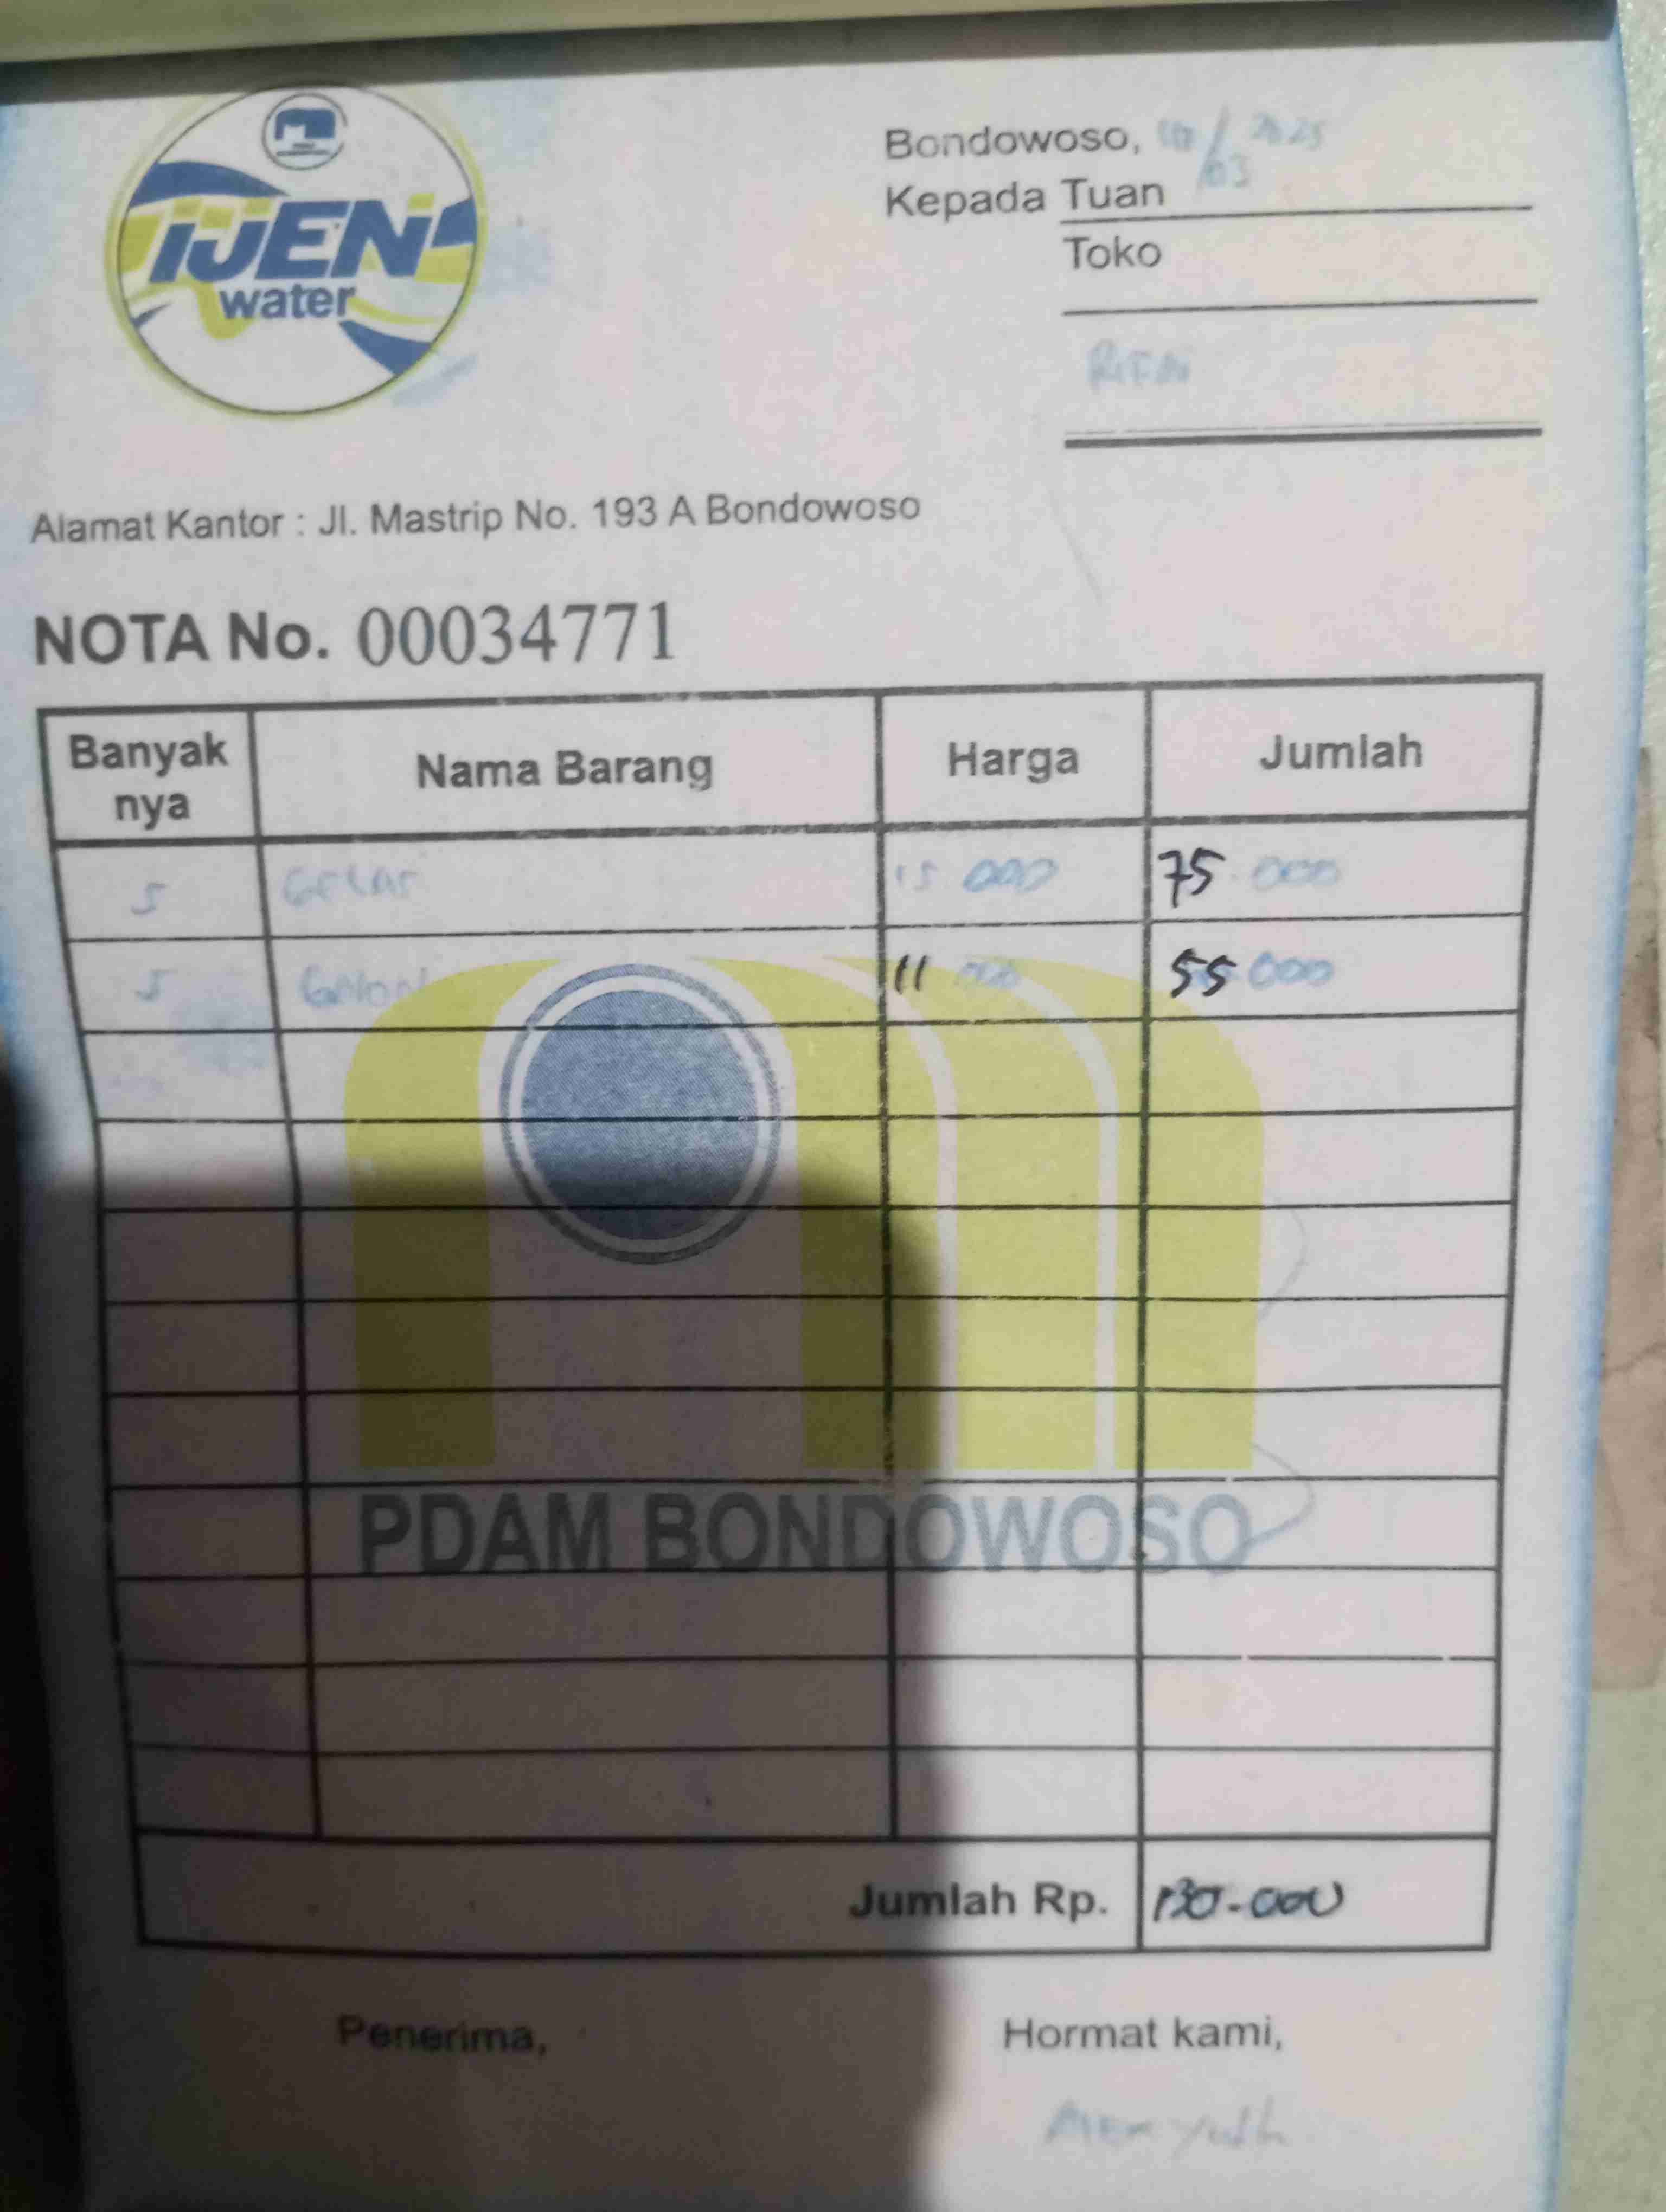 IJEN
water
Bondowoso, 10/03 2025
Kepada Tuan
Toko
Alamat Kantor : Jl. Mastrip No. 193 A Bondowoso
NOTA No. 00034771
Banyak nya Nama Barang Harga Jumlah
5 GELAS 15 000 75 000
5 Galon 11 000 55 000
PDAM BONDOWOSO
Jumlah Rp. 130.000
Penerima, Hormat kami,